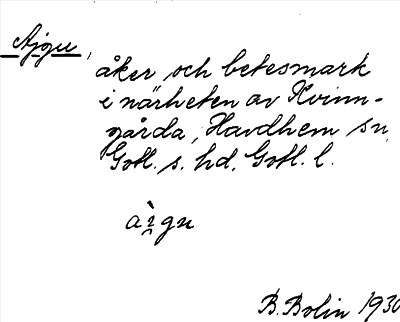 Ajgu,
åker och betesmark
i närheten av Kvinn-
gårda, Havdhem sn,
Gotl. s. hd, Gotl. l.
ài̯gu
B. Bolin 1930